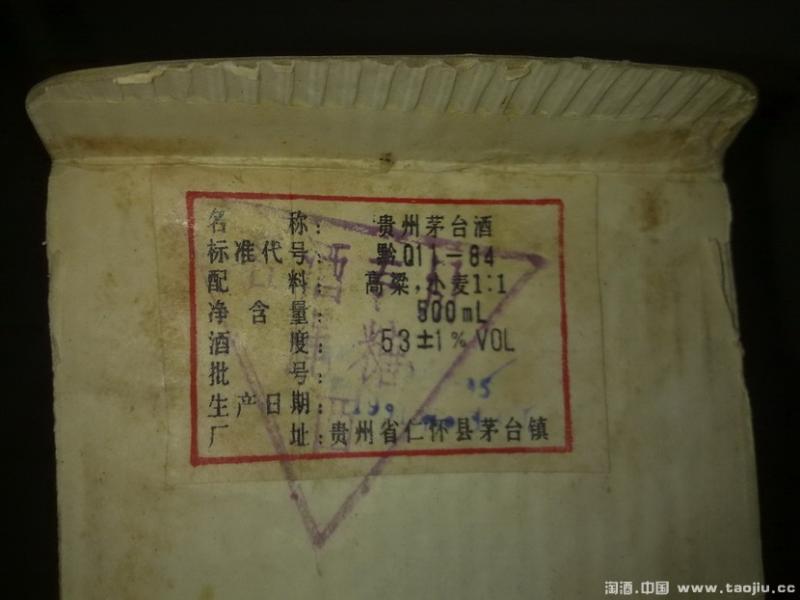 名称：贵州茅台酒
标准代号：黔Q11-84
配料：高粱,小麦1:1
净含量：500mL
酒度：53±1%VOL
批号：
生产日期：199
厂址：贵州省仁怀县茅台镇
淘酒.中国 www.taojiu.cc